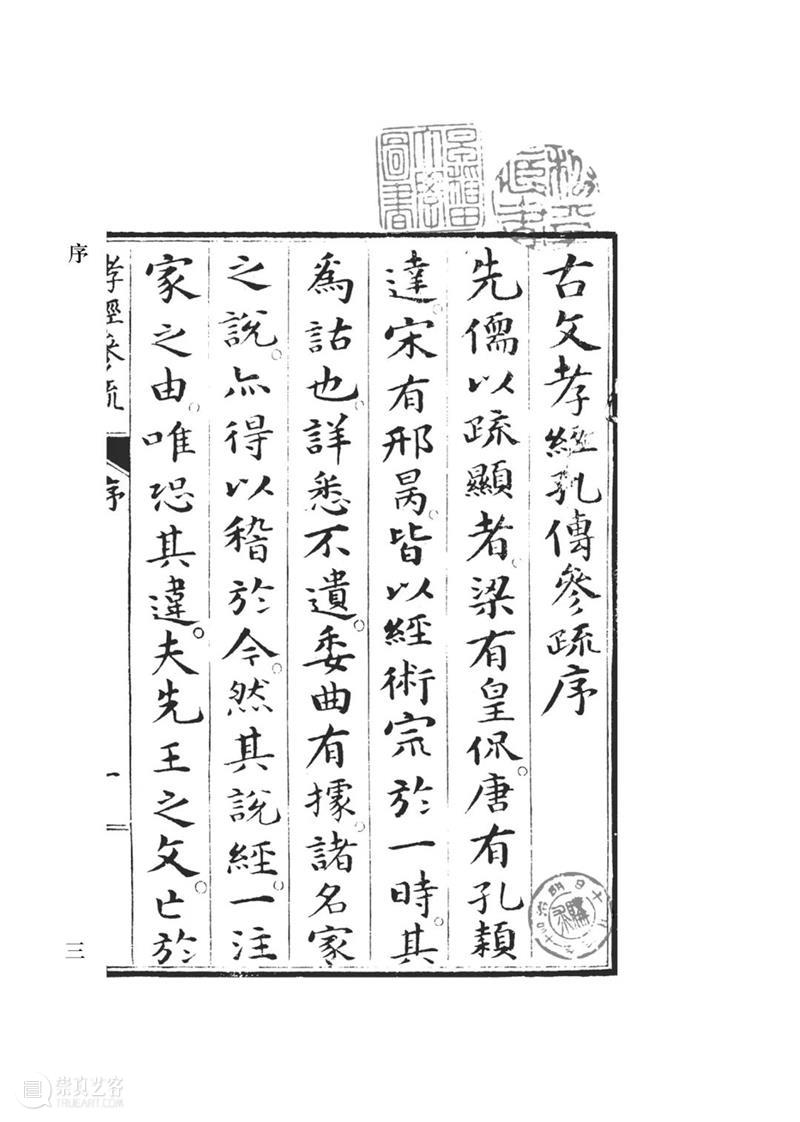 古文孝經孔傳參疏序
先儒以疏顯者。梁有皇侃。唐有孔穎
達。宋有邢昺。皆以經術宗於一時。其
爲詁也。詳悉不遺。委曲有據。諸名家
之說。亦得以稽於今。然其說經。一注
家之由。唯恐其違。夫先王之文。亡於
孝經參疏
序
一
序
三
早稻田大學圖書
崇真艺客
TRUEART.COM